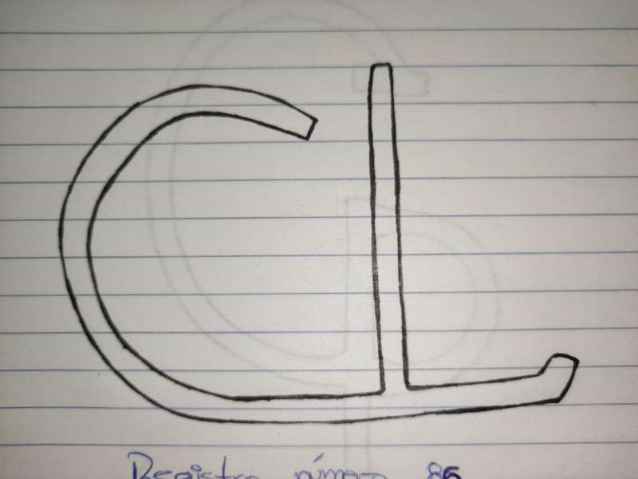 CL
Registro número 86